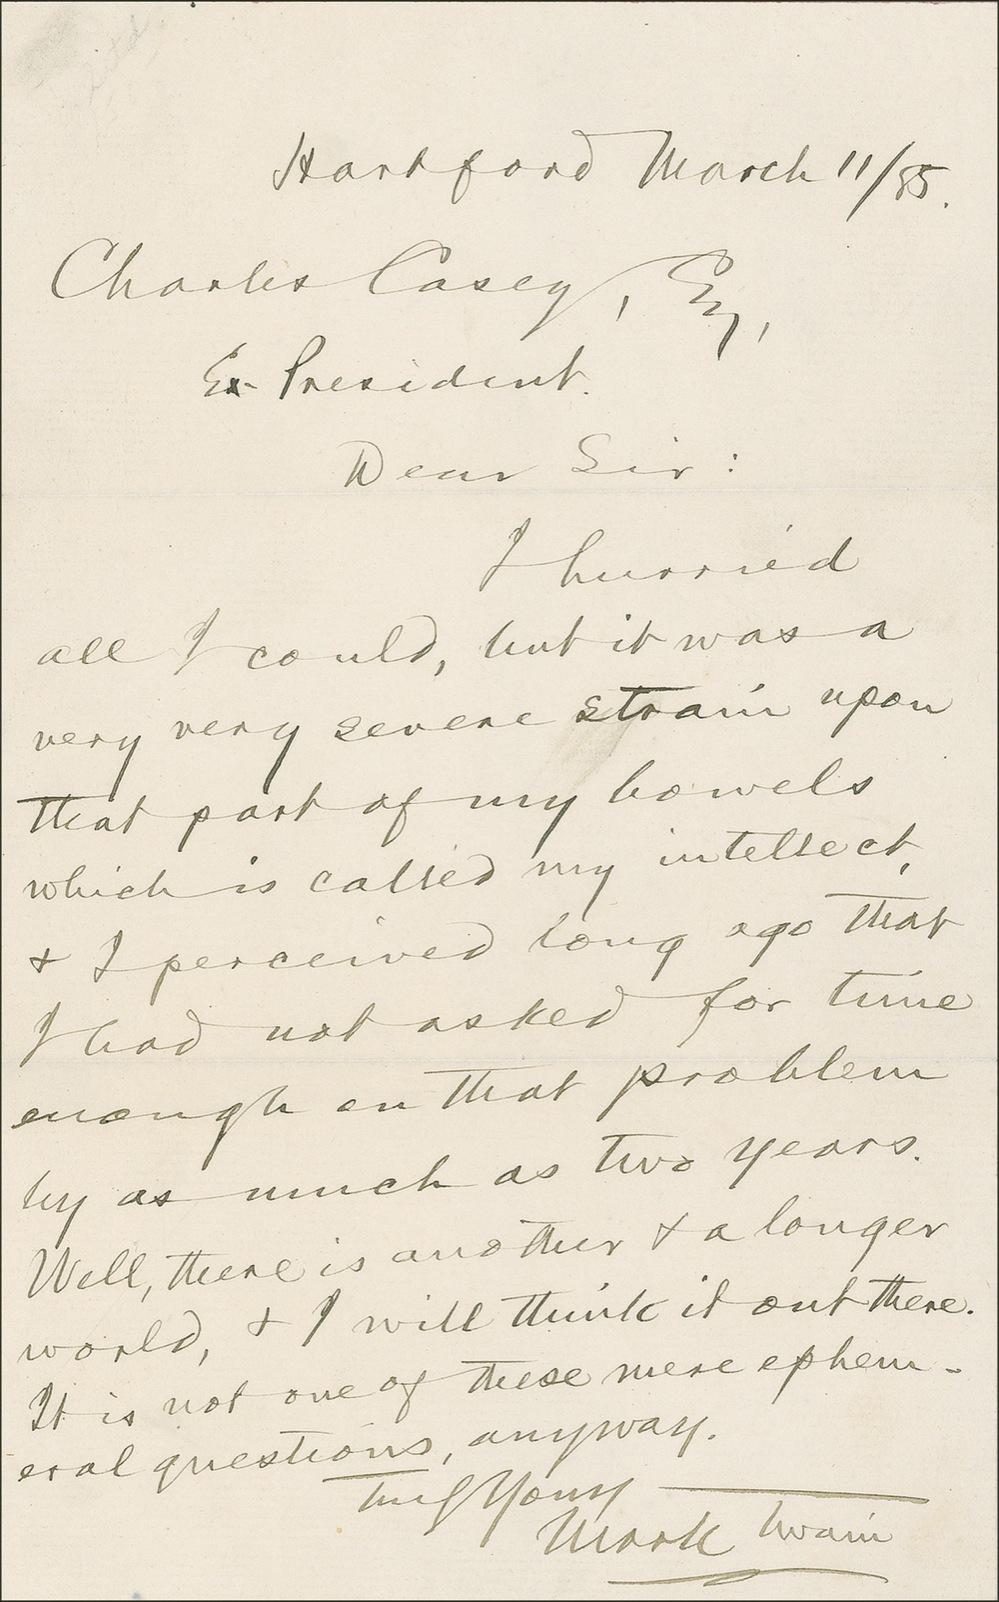 Hartford March 11/85.
Charles Casey, Esq,
Ex-President.
Dear Sir:
I hurried
all I could, but it was a
very very severe strain upon
that part of my bowels
which is called my intellect,
& I perceived long ago that
I had not asked for time
enough on that problem
by as much as two years.
Well, there is another & a longer
world, & I will think it out there.
It is not one of these mere ephem-
eral questions, anyway.
Truly Yours
Mark Twain